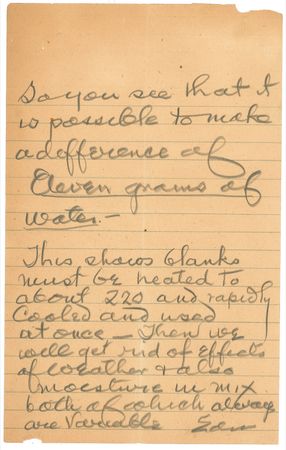 So you see that it
is possible to make
a difference of
Eleven grams of
water.—
This shows blanks
must be heated to
about 220 and rapidly
Cooled and used
at once — Then we
will get rid of Effects
of weather & also
moisture in mix
both of which always
are Variable